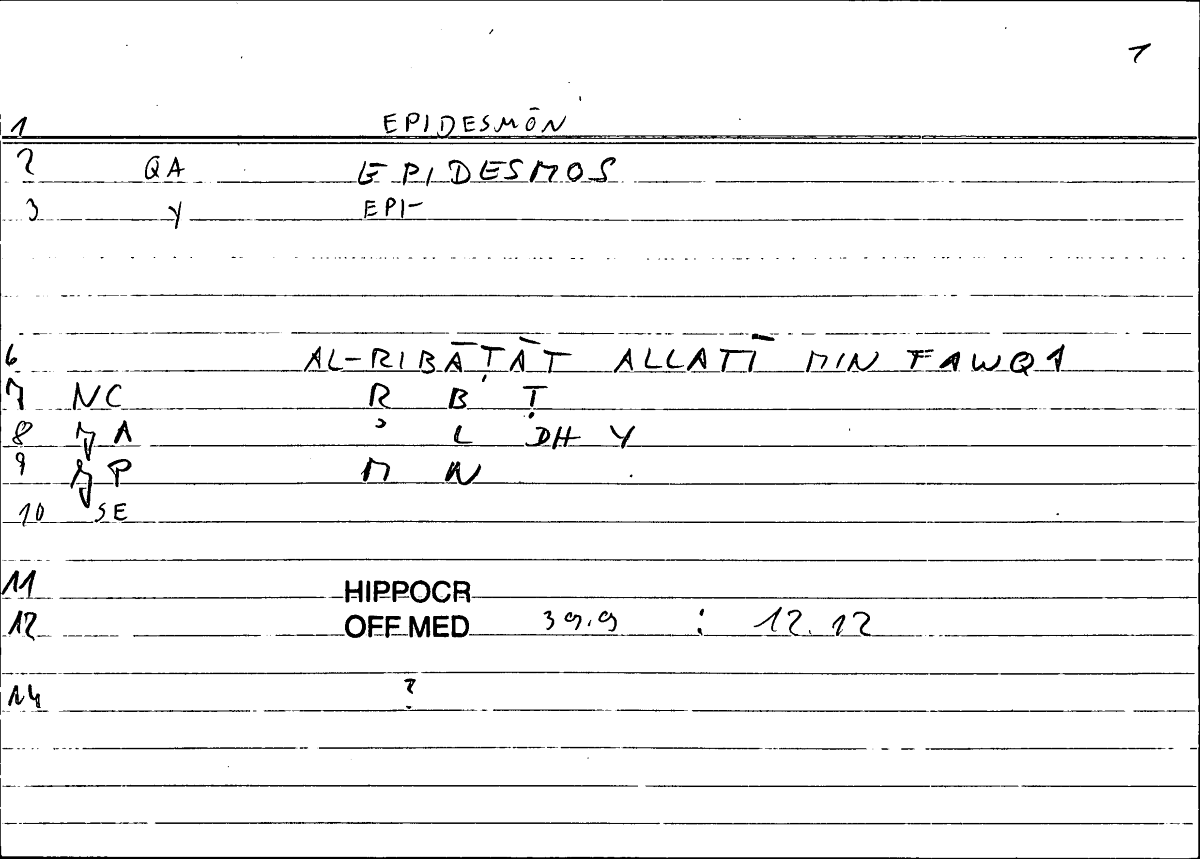 1
1 EPIDESMŌN
2 QA EPIDESMOS
3 Y EPI-
6 AL-RIBĀṬĀT ALLATĪ MIN FAWQ1
7 NC R B Ṭ
8 A ʾ L DH Y
9 P M N
10 SE
11 HIPPOCR
12 OFF MED 39.9 : 12.12
14 ?